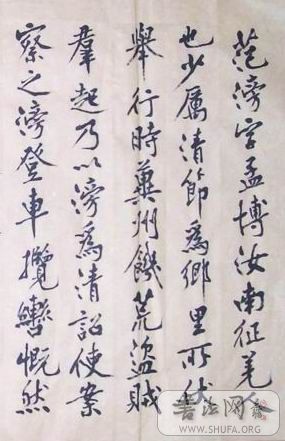 范滂字孟博汝南征羌人
也少厲清節爲鄉里所
舉行時冀州饑荒盜賊
羣起乃以滂爲清詔使案
察之滂登車攬轡慨然
書法网
WWW.SHUFA.ORG